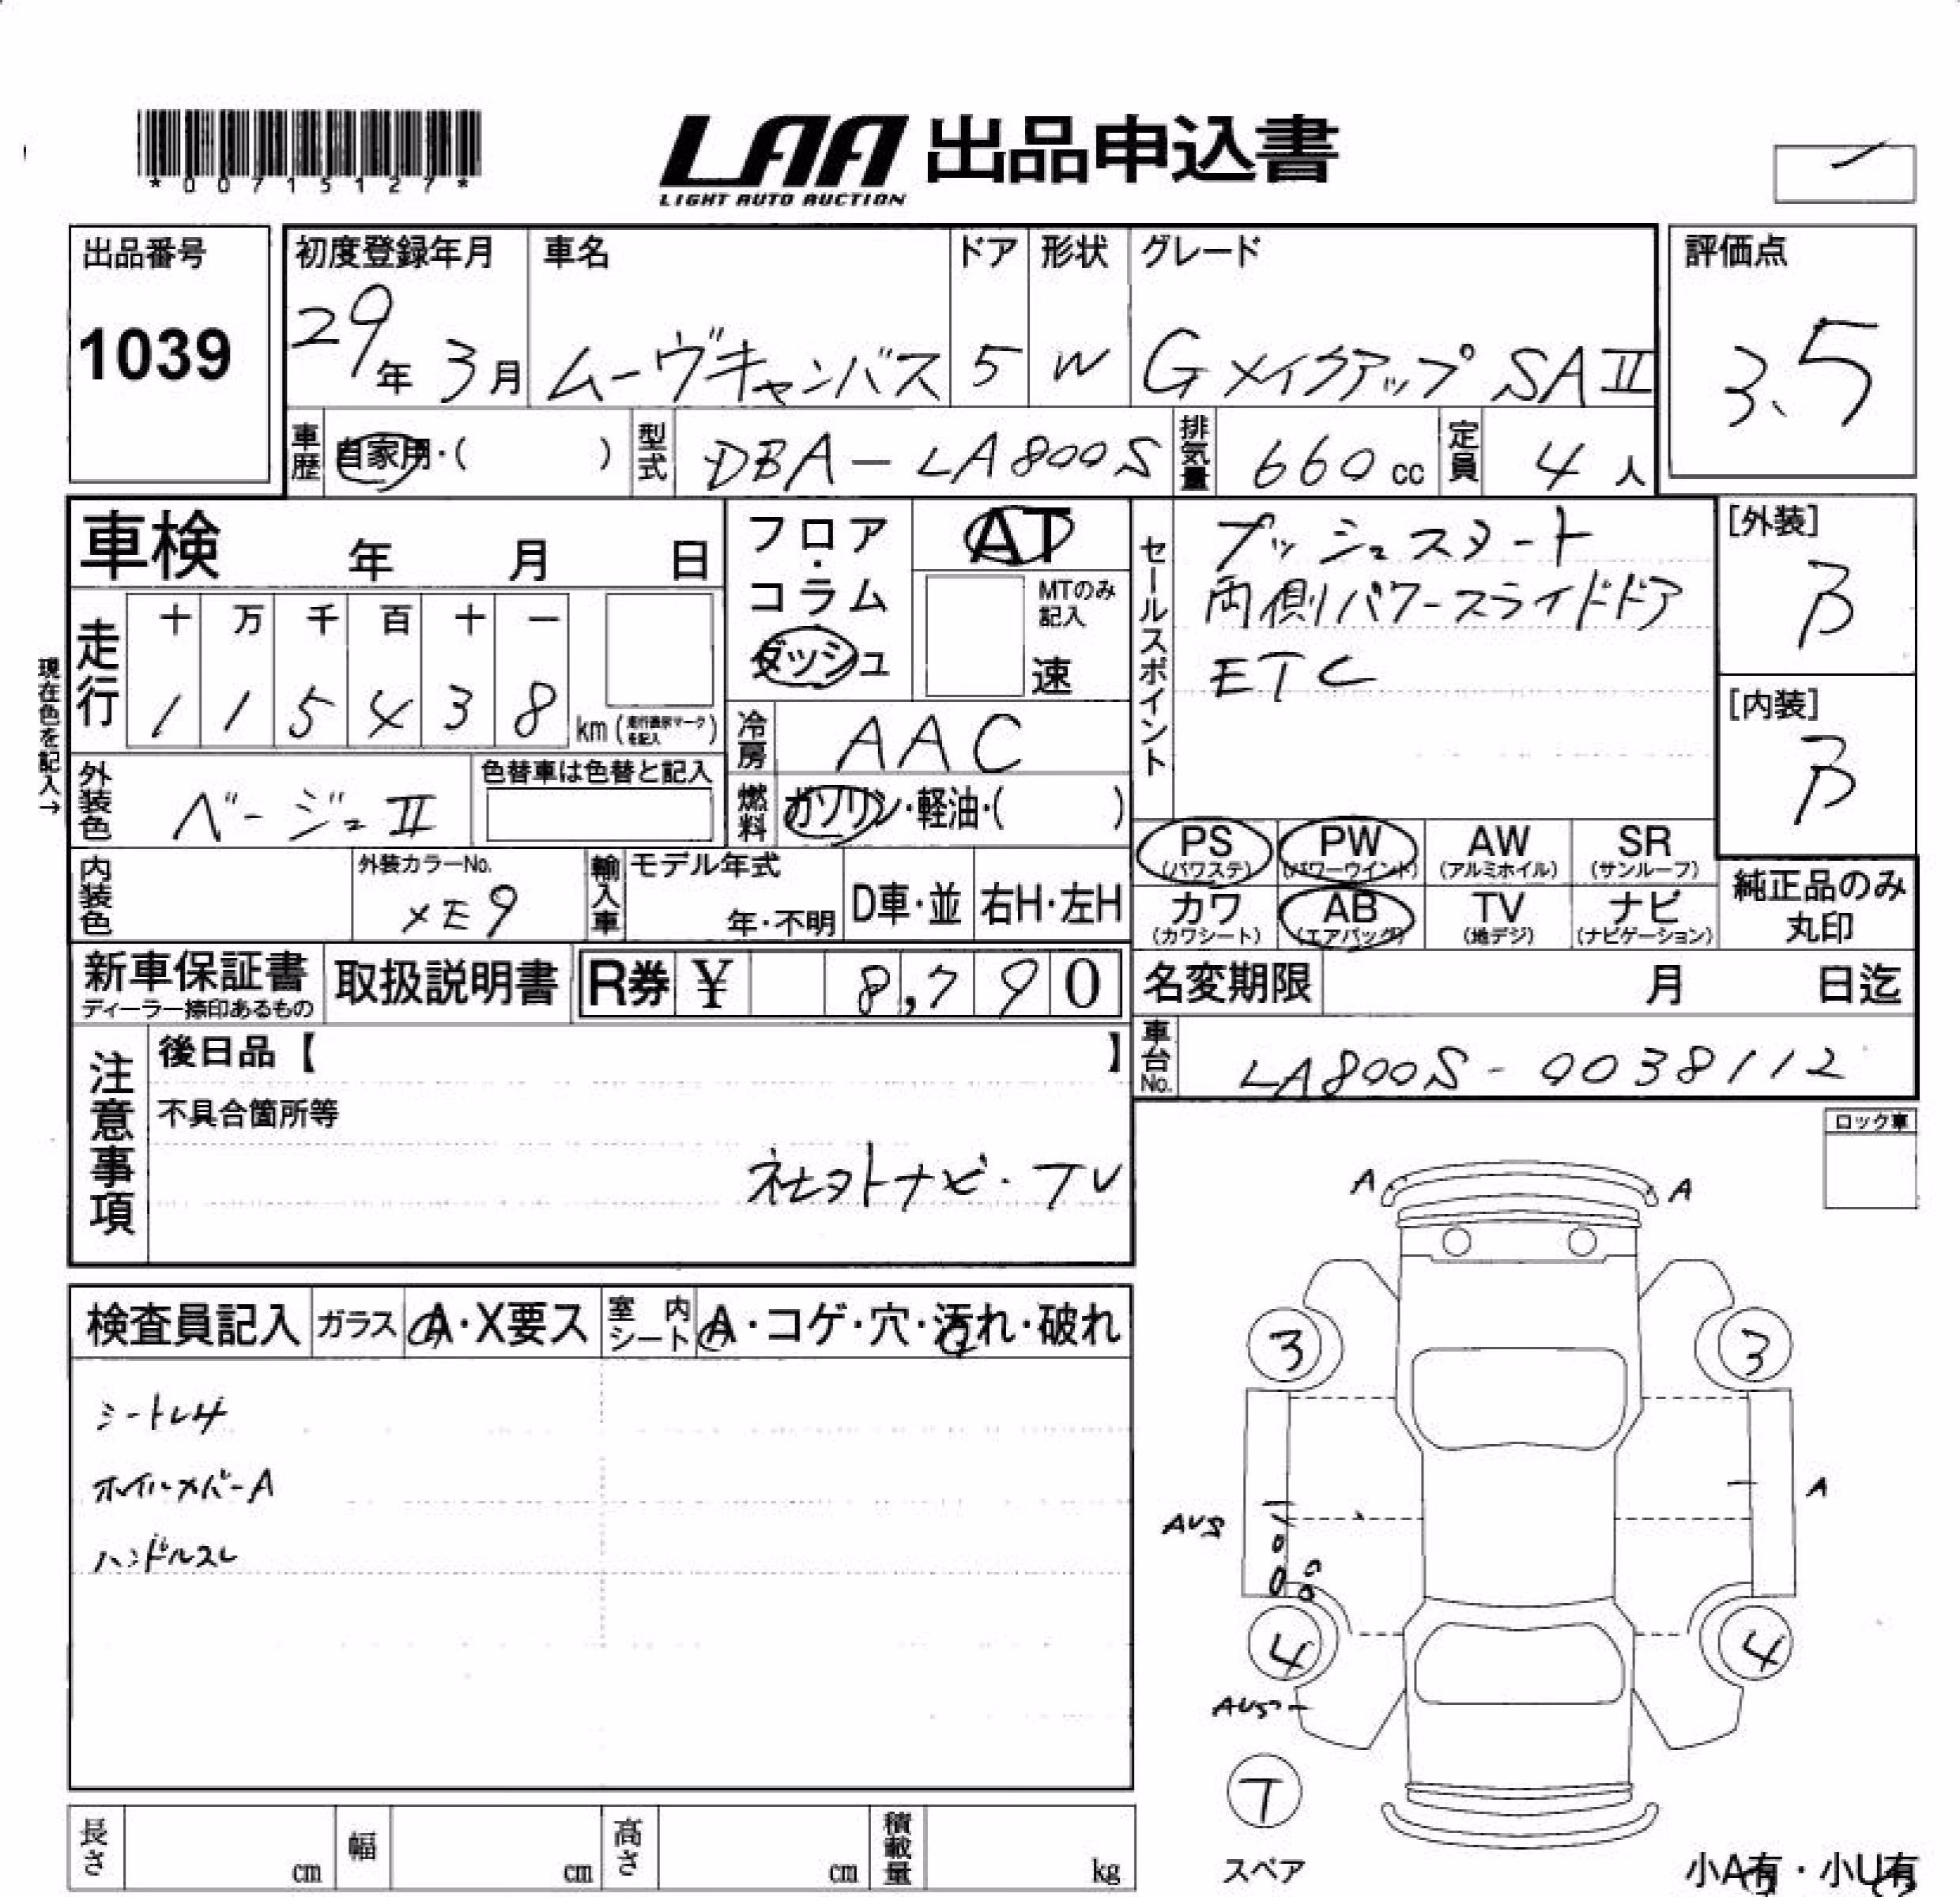 *00715127*
LAA 出品申込書
LIGHT AUTO AUCTION
出品番号
1039
初度登録年月
29年 3月
車名
ムーヴキャンバス
ドア
5
形状
W
グレード
Gメイクアップ SAⅡ
評価点
3.5
車歴
自家用・( )
型式
DBA-LA800S
排気量
660 cc
定員
4 人
車検 年 月 日
フロア・コラム
ダッシュ
AT
MTのみ記入
速
セールスポイント
プッシュスタート
両側パワースライドドア
ETC
[外装]
B
[内装]
B
現在色を記入→
走行
十 万 千 百 十 一
1 1 5 4 3 8 km (走行表示マークを記入)
冷房
AAC
外装色
ベージュⅡ
色替車は色替と記入
燃料
ガソリン・軽油・( )
PS
(パワステ)
PW
(パワーウインド)
AW
(アルミホイル)
SR
(サンルーフ)
カワ
(カワシート)
AB
(エアバッグ)
TV
(地デジ)
ナビ
(ナビゲーション)
純正品のみ
丸印
内装色
外装カラーNo.
XE9
輸入車
モデル年式
年・不明
D車・並
右H・左H
新車保証書
ディーラー捺印あるもの
取扱説明書
R券 ¥ 8,790
名変期限 月 日迄
車台No.
LA800S-0038112
注意事項
後日品【 】
不具合箇所等
社外ナビ・TV
ロック車
検査員記入
ガラス
A・X要ス
室内シート
A・コゲ・穴・汚れ・破れ
シートレサ
ホイルカバーA
ハンドルスレ
A
A
3
3
AUS
A
4
4
T
スペア
長さ cm
幅 cm
高さ cm
積載量 kg
小A有・小U有